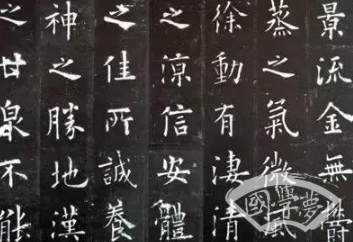 景流金無鬱
蒸之氣微風
徐動有淒清
之涼信安體
之佳所誠養
神之勝地漢
之甘泉不能
國學夢